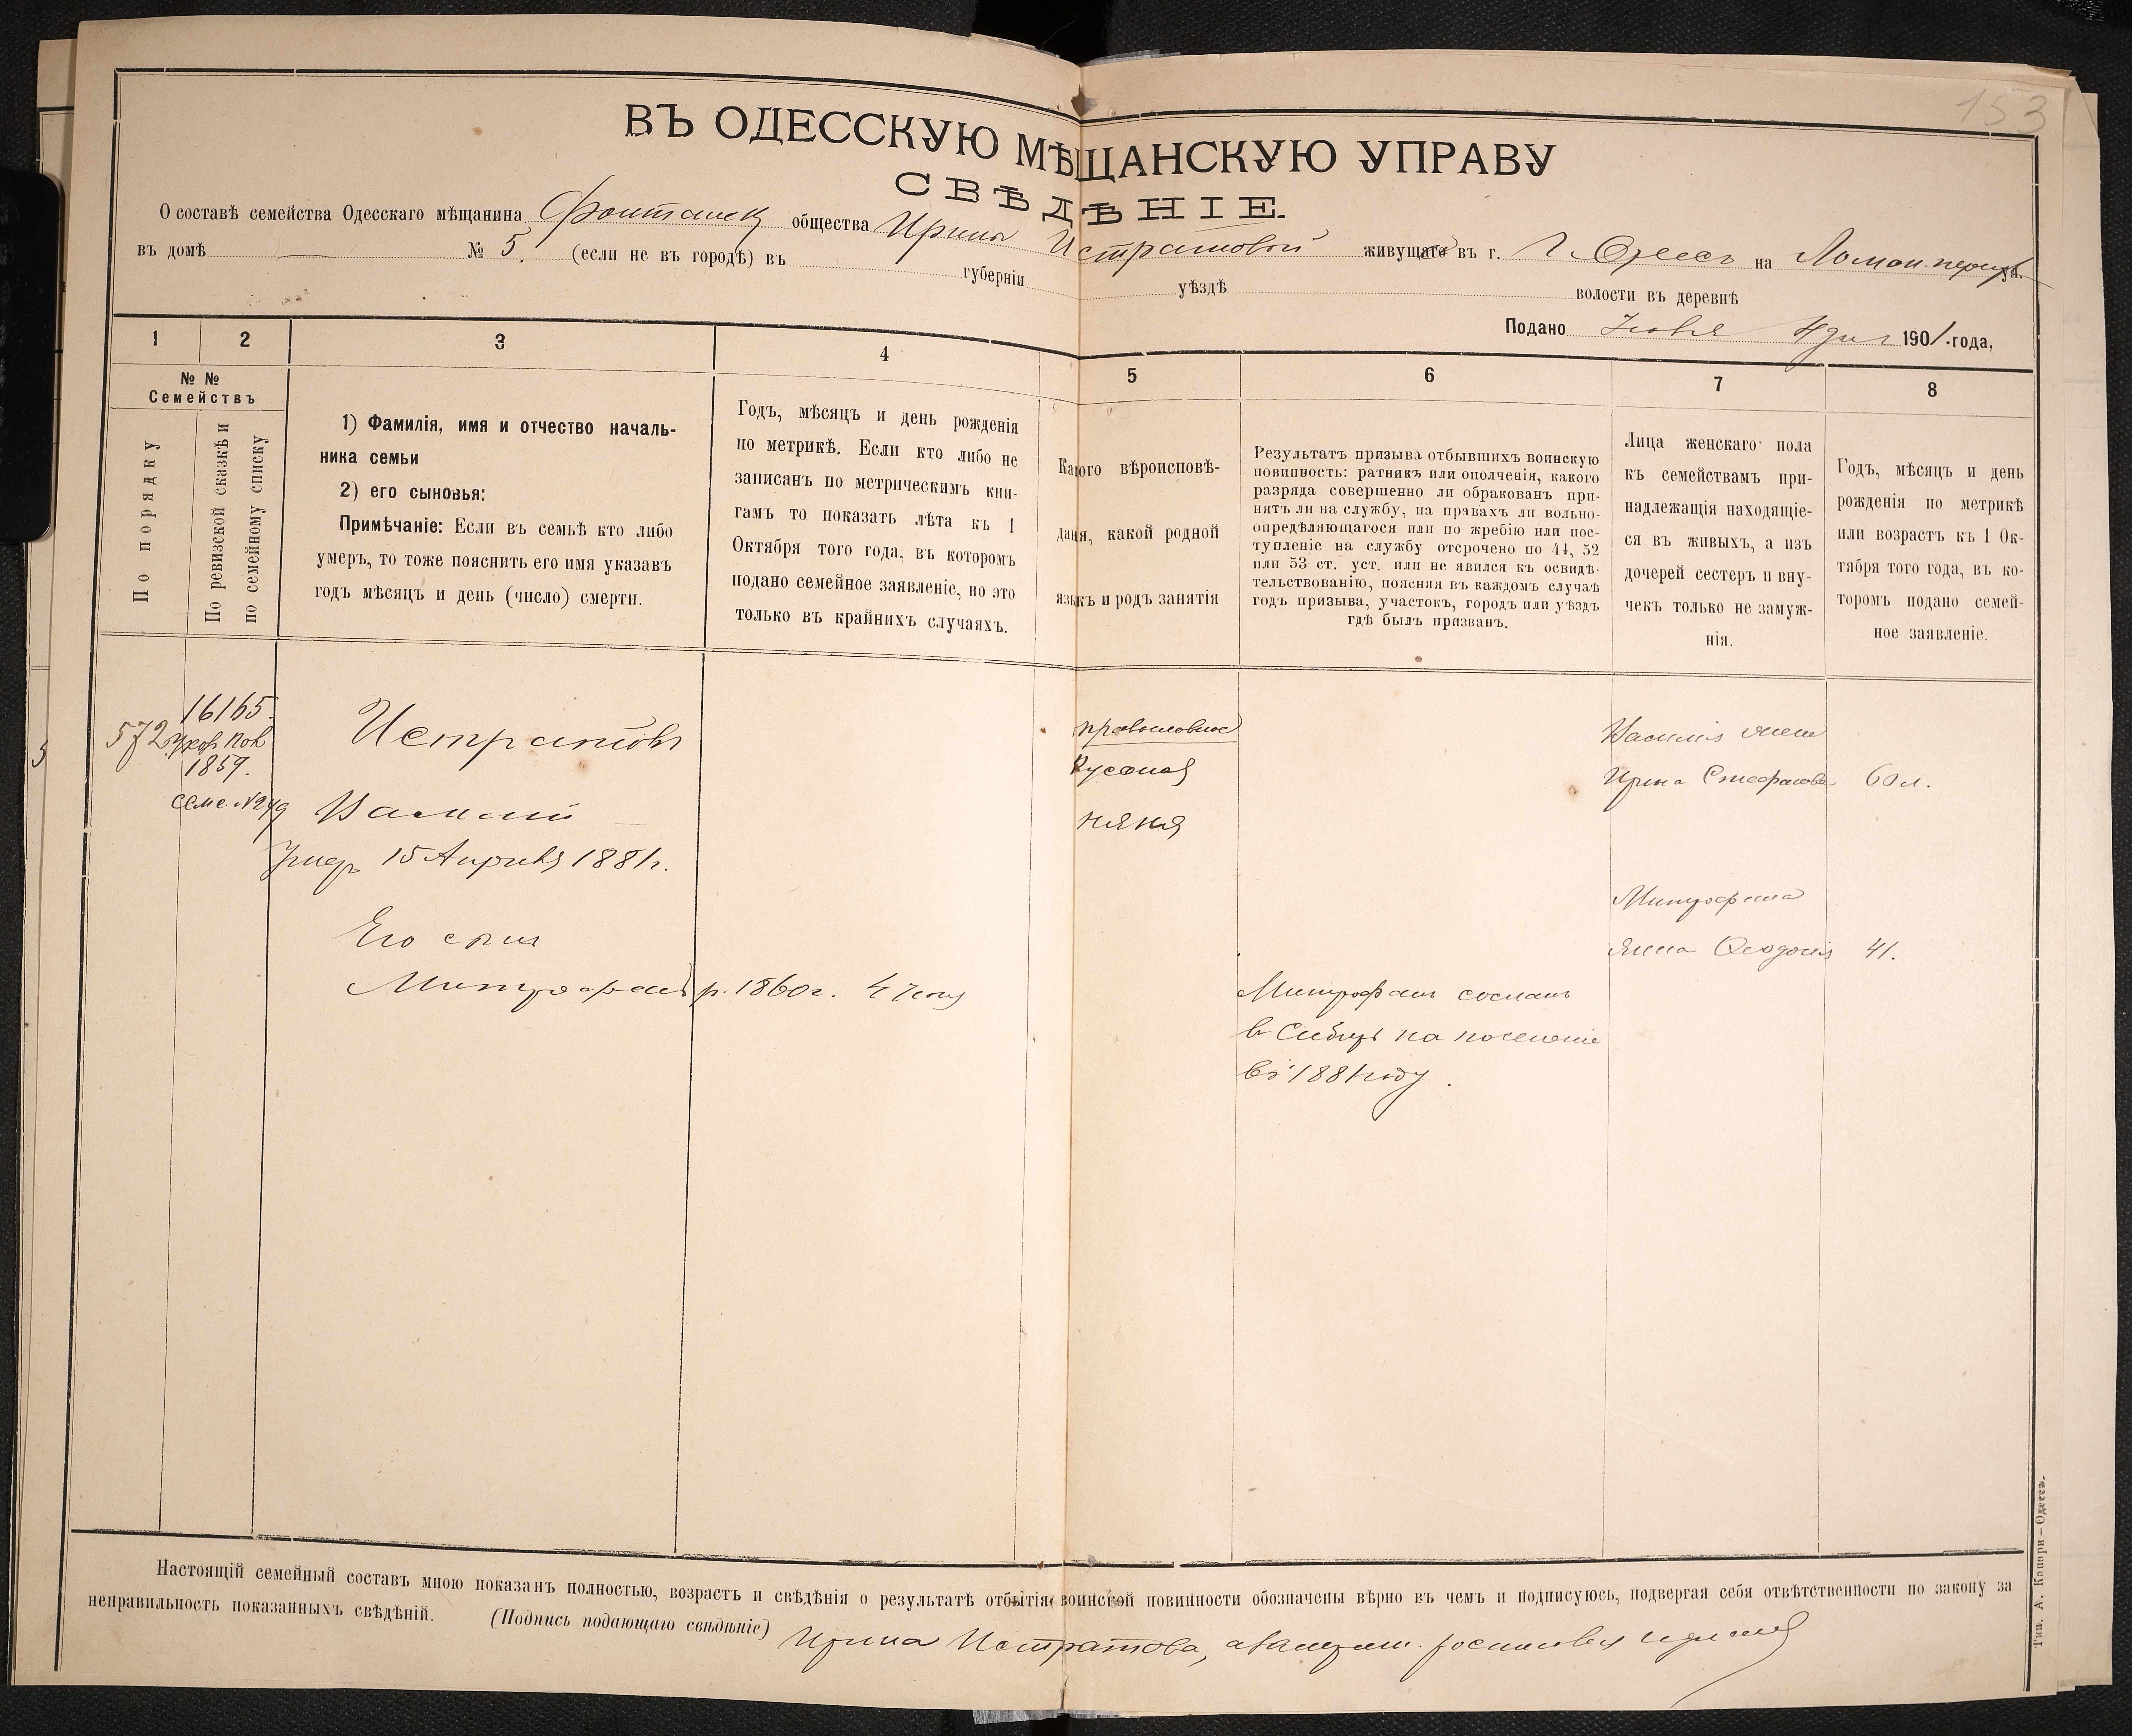 153
ВЪ ОДЕССКУЮ МѢЩАНСКУЮ УПРАВУ
СВѢДѢНІЕ.
О составѣ семейства Одесскаго мѣщанина Фонтанск общества Ирины Истратовой живущаго въ г. Г Одессѣ на Ломан. переул ул.
въ домѣ — № 5. (если не въ городѣ) въ губерніи уѣздѣ волости въ деревнѣ
Подано 4 дня 1901. года,
1 2 3 4 5 6 7 8
№ №
Семействъ
По порядку
По ревизской сказкѣ и
по семейному списку
1) Фамилія, имя и отчество началь-
ника семьи
2) его сыновья:
Примѣчаніе: Если въ семьѣ кто либо
умеръ, то тоже пояснить его имя указавъ
годъ мѣсяцъ и день (число) смерти.
Годъ, мѣсяцъ и день рожденія
по метрикѣ. Если кто либо не
записанъ по метрическимъ кни-
гамъ то показать лѣта къ 1
Октября того года, въ которомъ
подано семейное заявленіе, но это
только въ крайнихъ случаяхъ.
Какого вѣроисповѣ-
данія, какой родной
языкъ и родъ занятія
Результатъ призыва отбывшихъ воинскую
повинность: ратникъ или ополченія, какого
разряда совершенно ли обракованъ при-
нятъ ли на службу, на правахъ ли вольно-
опредѣляющагося или по жребію или пос-
тупленіе на службу отсрочено по 44, 52
или 53 ст. уст. или не явился къ освидѣ-
тельствованію, поясняя въ каждомъ случаѣ
годъ призыва, участокъ, городъ или уѣздъ
гдѣ былъ призванъ.
Лица женскаго пола
къ семействамъ при-
надлежащія находящіе-
ся въ живыхъ, а изъ
дочерей сестеръ и вну-
чекъ только не замуж-
нія.
Годъ, мѣсяцъ и день
рожденія по метрикѣ
или возрастъ къ 1 Ок-
тября того года, въ ко-
торомъ подано семей-
ное заявленіе.
572
16165.
1859.
семе. № 249
Истратовъ
Василий
Умеръ 15 Апрѣля 1881 г.
Его сынъ
Митрофанъ р. 1860 г. 4 Іюня
православное
Русской
няня
Митрофанъ сосланъ
в Сибирь на поселеніе
въ 1881 году.
Василія жена
Ирина Стефанова 60 л.
Митрофана
жена Феодосія 41.
Настоящій семейный составъ мною показанъ полностью, возрастъ и свѣдѣнія о результатѣ отбытія воинской повинности обозначены вѣрно въ чемъ и подписуюсь, подвергая себя отвѣтственности по закону за
неправильность показанныхъ свѣдѣній. (Подпись подающаго свѣдѣніе) Ирина Истратова,
Тип. А. Кашари – Одесса.